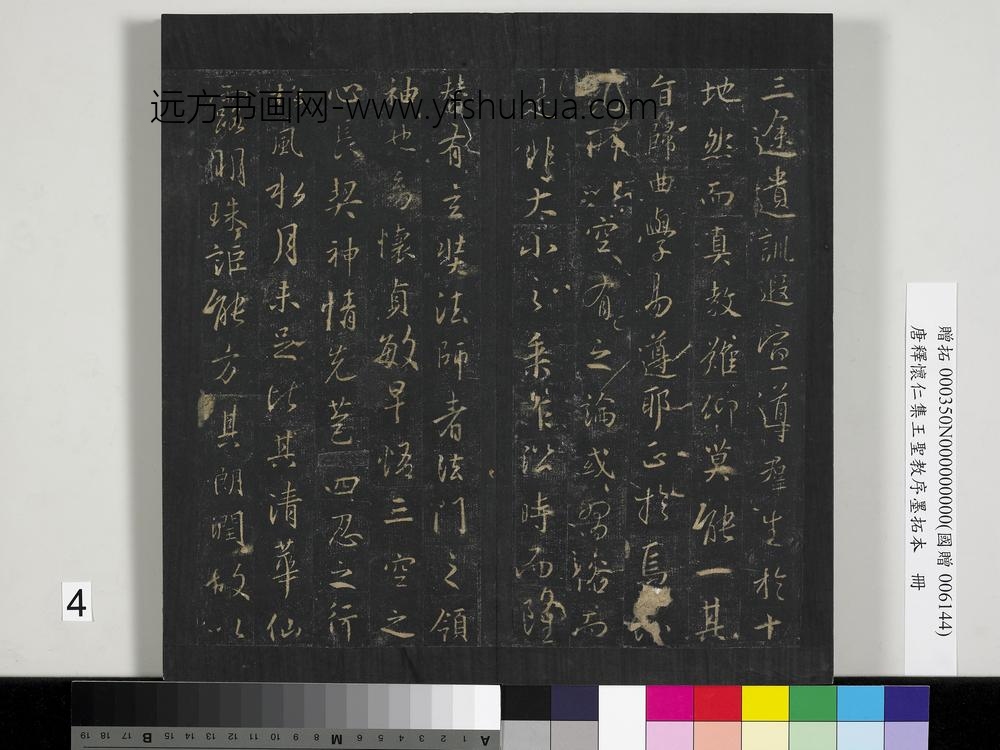 三途遺訓遐宣導群生於十
地然而真教難仰莫能一其
旨歸曲學易遵耶正於焉
所以空有之論或習俗而
是非大小之乘乍沿時而隆
替有玄奘法師者法門之領
袖也幼懷貞敏早悟三空之
心長契神情先苞四忍之行
松風水月未足比其清華仙
露明珠詎能方其朗潤故以
远方书画网-www.yfshuhua.com
贈拓 000350N000000000(國贈 006144)
唐釋懷仁集王聖教序墨拓本 冊
4
A 1 2 3 4 5 6 M 8 9 10 11 12 13 14 15 B 17 18 19